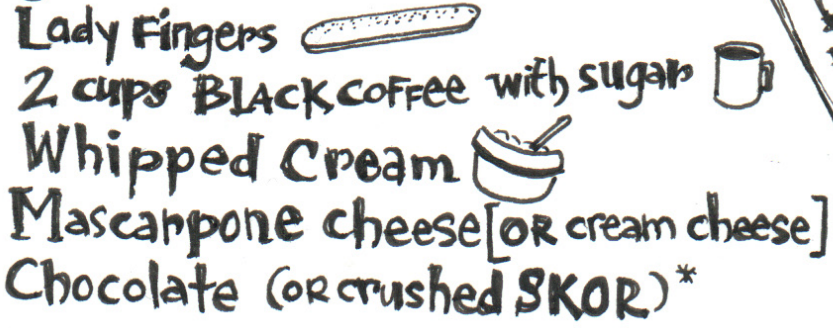 Lady Fingers
2 cups BLACK COFFee with sugar
Whipped Cream
Mascarpone cheese [OR cream cheese]
Chocolate (OR crushed SKOR)*